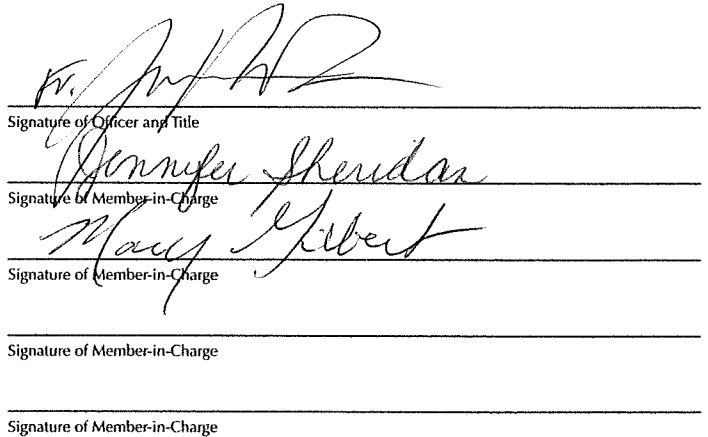 Fr.
Signature of Officer and Title
Jennifer Sheridan
Signature of Member-in-Charge
Mary Gilbert
Signature of Member-in-Charge
Signature of Member-in-Charge
Signature of Member-in-Charge